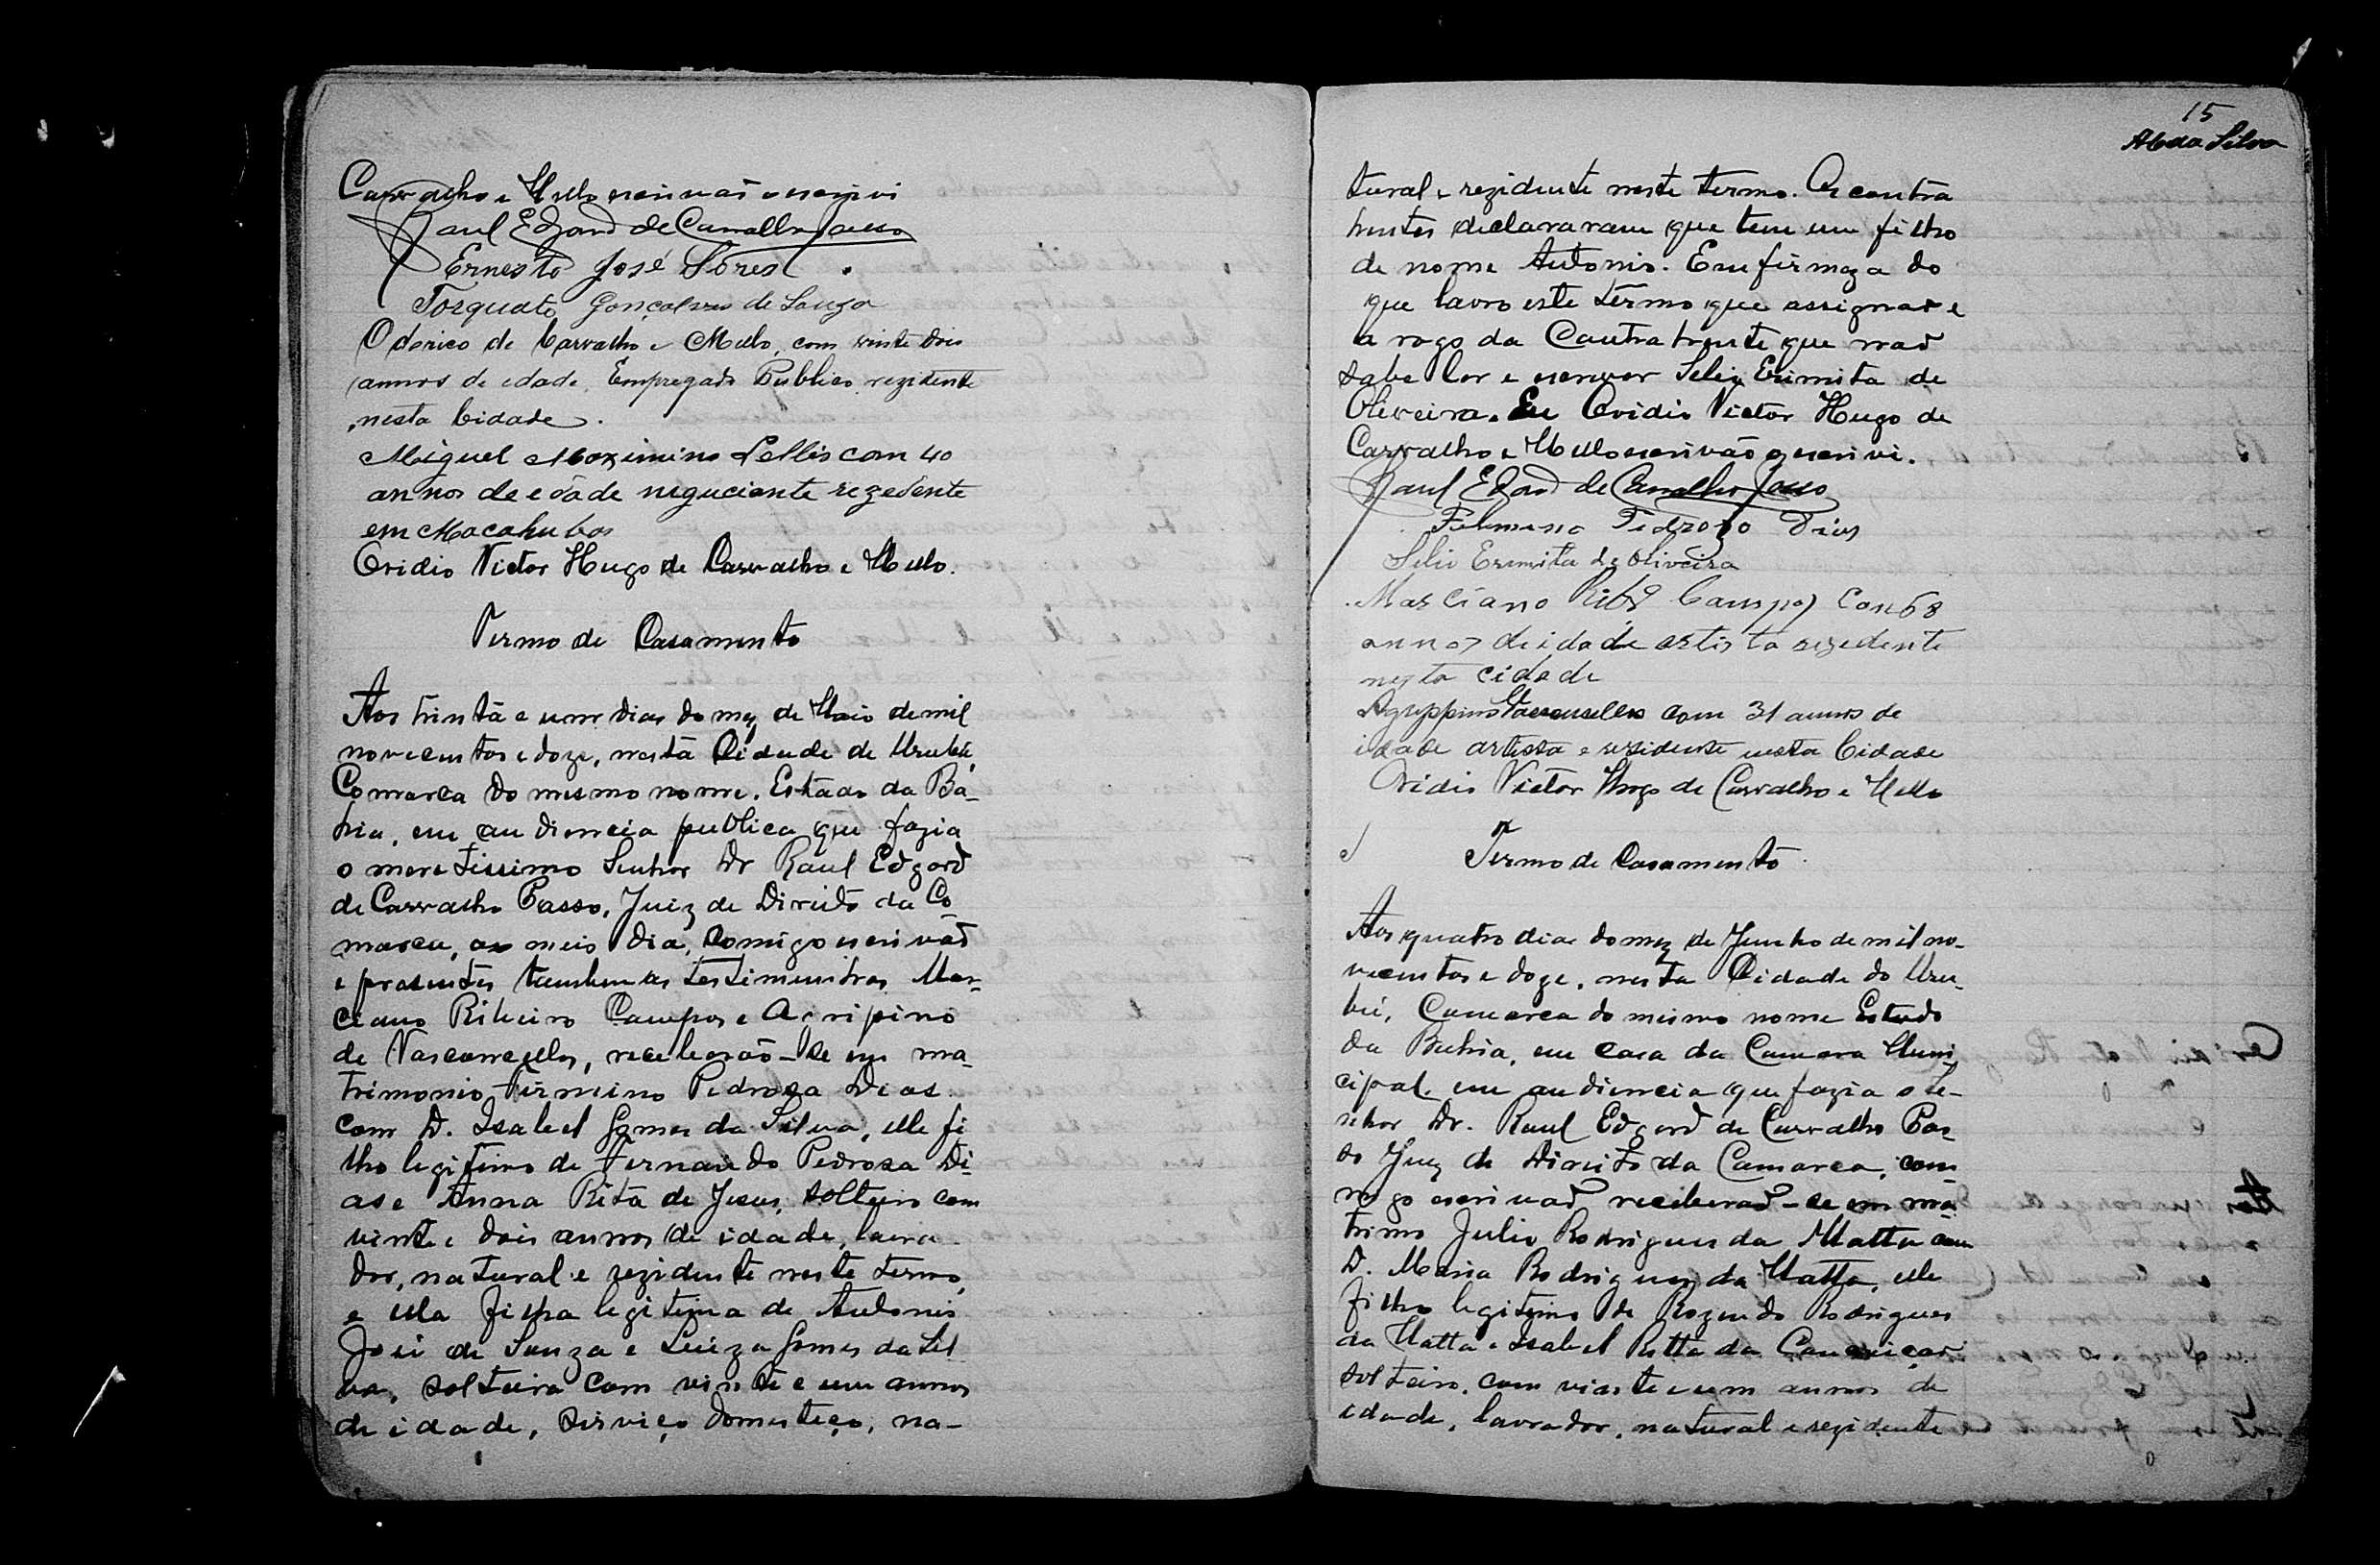 Carvalho e Mello escrivão o escrevi
Raul Edgard de Carvalho Passo
Ernesto José Sores
Torquato Gonçalves de Souza
Oderico de Carvalho e Mello, com vinte dois
annos de edade, Empregado Publico rezidente
nesta Cidade.
Miguel Moximino Lellis com 40
annos de edade neguciante rezedente
em Macahubas
Ovidio Victor Hugo de Carvalho e Mello.
Termo de Casamento
Aos trinta e um dias do mez de Maio de mil
novecentos e doze, nesta Cidade de Urubú,
Comarca do mesmo nome. Estado da Ba-
hia, em audiencia publica que fazia
o meretissimo Senhor Dr Raul Edgard
de Carvalho Passo, Juiz de Direito da Co
marca, ao meio dia, comigo escrivão
e prasentes tambem as testimunhas Mar-
ciano Ribeiro Campos e Acripino
de Vasconcellos, receberão-se em ma-
trimonio Firmino Pedroza Dias
com D. Isabel Gomes da Silva, elle fi
lho legitimo de Fernando Pedrosa Di-
as e Anna Rita de Jesus, solteiro com
vinte e dois annos de idade, lavra-
dor, natural e rezidente neste termo,
e ella filha legitima de Antonio
José de Souza e Luiza Gomes da Sil
va, solteira com vinte e um annos
de idade, serviço domestico, na-
15
tural e rezidente neste termo. Os contra
hentes declararam que tem um filho
de nome Antonio. Em firmeza do
que lavro este termo que assignar e
a rogo da Contrahente que não
sabe ler e escrever Selio Erimita de
Oliveira. Eu Ovidio Victor Hugo de
Carvalho e Mello escrivão o escrevi.
Raul Edgard de Carvalho Passo
Felmino Pedrozo Dias
Selio Eremita de Oliveira
Marciano Ribº Campos Com 58
annos de idade artista rezedente
nesta cidade
Agrippino Vasconsellos com 31 annos de
idade artista e residente nesta Cidade
Ovidio Victor Hugo de Carvalho e Mello
Termo de Casamento
Aos quatro dias do mez de Junho de mil no-
vecentos e doze, nesta Cidade do Uru-
bú, Comarca do mesmo nome Estado
da Bahia, em casa da Camara Muni
cipal, em audiencia que fazia o Se-
nhor Dr. Raul Edgard de Carvalho Pas-
so Juiz de Direito da Comarca, com
migo escrivão receberão-se em ma-
trimo Julio Rodrigues da Matta com
D. Maria Rodrigues da Matta, elle
filho legitimo de Rozendo Rodrigues
da Matta e Isabel Ritta da Conceição
solteiro, com vinte e um annos de
idade, lavrador, natural e rezidente